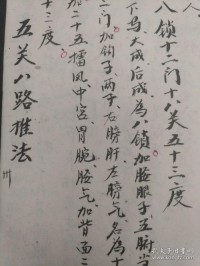 八锁十二门十八关五十三度
下马大成后成为八锁加腋眼子五腑当
二门加钩子两子右膀肝左膀气名为十
加二十五擂风中宫胃腕腋气加背面二
十三度
五关八路推法